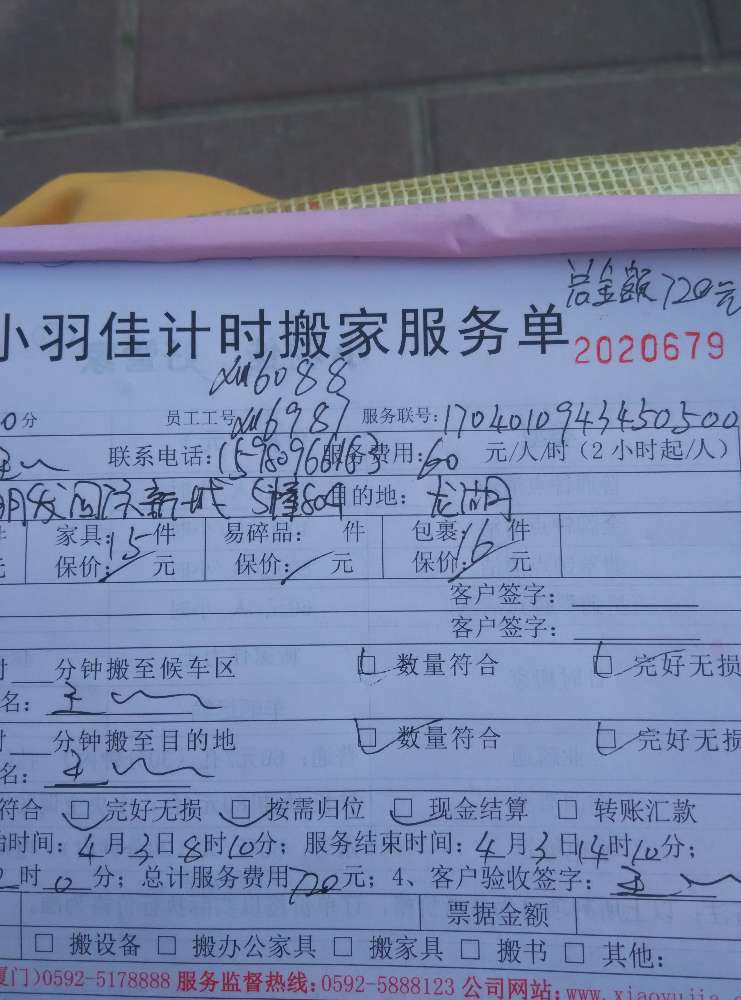 总金额720元
小羽佳计时搬家服务单 2020679
xm6088
0分 员工工号 xm6987 服务联号:170401094345 0500
联系电话:15980966163 服务费用:60 元/人/时(2小时起/人)
明发 新城5幢804 目的地:龙湖
件 家具:15件 易碎品: 件 包裹:16件
元 保价: 元 保价: 元 保价: 元
客户签字:
客户签字:
时 分钟搬至候车区 □ 数量符合 □ 完好无损
名:王
时 分钟搬至目的地 □ 数量符合 □ 完好无损
名:王
符合 □ 完好无损 □ 按需归位 □ 现金结算 □ 转账汇款
始时间:4月3日8时10分;服务结束时间:4月3日14时10分;
时0分;总计服务费用720元;4、客户验收签字:王
票据金额
□ 搬设备 □ 搬办公家具 □ 搬家具 □ 搬书 □ 其他:
厦门)0592-5178888 服务监督热线:0592-5888123 公司网站:www.xiaoyujia